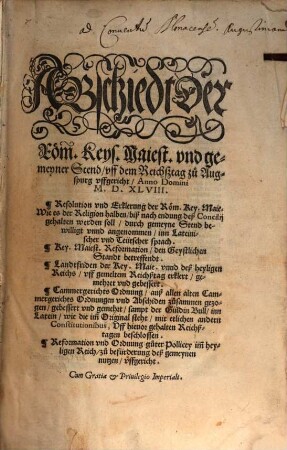 ad Conventū Monacensē Augustinianū
Abschiedt Der
Röm. Keys. Maiest. vnd ge-
meyner Stend / vff dem Reichßtag zů Aug-
spurg vffgericht / Anno Domini
M. D. XLVIII.
¶ Resolution vnd Erklerung der Röm. Key. Maie.
Wie es der Religion halben / biß nach endung deß Concilij
gehalten werden soll / durch gemeyne Stend be-
willigt vnnd angenommen / inn Latein-
scher vnd Teutscher sprach.
¶ Key. Maiest. Reformation / den Geystlichen
Standt betreffendt.
¶ Landtfrieden der Key. Maie. vnnd deß heyligen
Reichs / vff gemeltem Reichßtag erklert / ge-
mehret vnd gebessert.
¶ Cammergerichts Ordnung / auß allen alten Cam-
mergerichts Ordnungen vnd Abschieden zůsammen gezo-
gen / gebessert vnd gemehrt / sampt der Gülden Bull / inn
Latein / wie die im Original steht / mit etlichen andern
Constitutionibus, Vff hieuor gehalten Reichß-
tagen beschlossen.
¶ Reformation vnd Ordnung gůter Pollicey im hey-
ligen Reich / zů befürderung deß gemeynen
nutzen / vffgericht.
Cum Gratia & Priuilegio Imperiali.